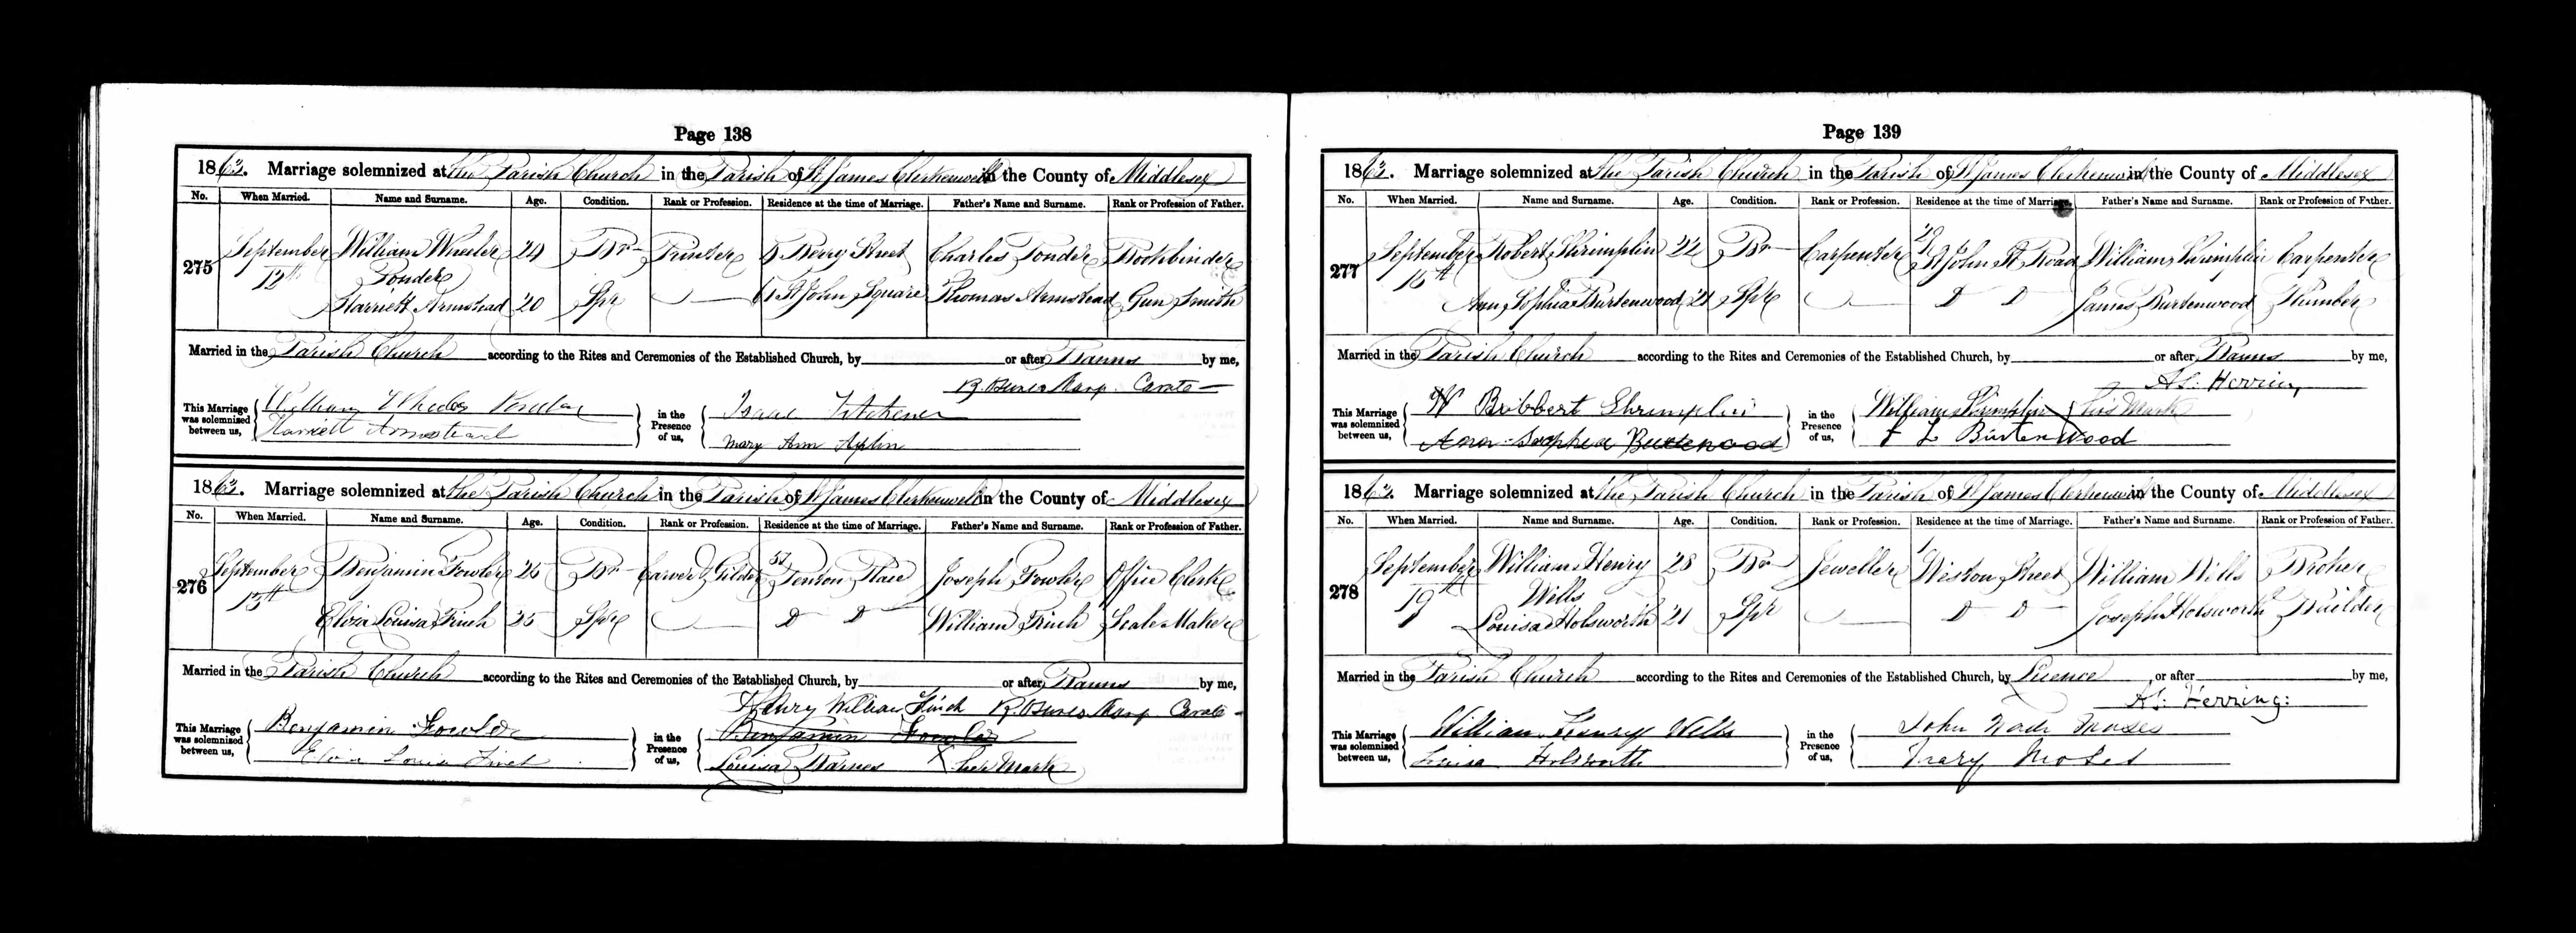 Page 138
1863. Marriage solemnized at the Parish Church in the Parish of St James Clerkenwell in the County of Middlesex
No. When Married. Name and Surname. Age. Condition. Rank or Profession. Residence at the time of Marriage. Father's Name and Surname. Rank or Profession of Father.
275 September 12th William Wheeler Ponder 24 Br Printer Berry Street Charles Ponder Bookbinder
Harriett Armstead 20 Spr — 61 St John Square Thomas Armstead Gun Smith
Married in the Parish Church according to the Rites and Ceremonies of the Established Church, by or after Banns by me,
Curate
This Marriage was solemnized between us, William Wheeler Ponder in the Presence of us, Isaac
Harriett Armstead Mary Ann Aplin
1863. Marriage solemnized at the Parish Church in the Parish of St James Clerkenwell in the County of Middlesex
No. When Married. Name and Surname. Age. Condition. Rank or Profession. Residence at the time of Marriage. Father's Name and Surname. Rank or Profession of Father.
276 September 13th Benjamin Fowler 26 Br Carver & Gilder 57 Penton Place Joseph Fowler Office Clerk
Eliza Louisa Finch 25 Spr — D D William Finch Scale Maker
Married in the Parish Church according to the Rites and Ceremonies of the Established Church, by or after Banns by me,
Henry William Finch Curate
This Marriage was solemnized between us, Benjamin Fowler in the Presence of us, Benjamin Fowler
Eliza Louisa Finch Louisa Barnes X her Mark
Page 139
1863. Marriage solemnized at the Parish Church in the Parish of St James Clerkenwell in the County of Middlesex
No. When Married. Name and Surname. Age. Condition. Rank or Profession. Residence at the time of Marriage. Father's Name and Surname. Rank or Profession of Father.
277 September 16th Robert Shrimplin 22 Br Carpenter 29 St John St Road William Shrimplin Carpenter
Ann Sophia Burtenwood 21 Spr — D D James Burtenwood Plumber
Married in the Parish Church according to the Rites and Ceremonies of the Established Church, by or after Banns by me,
As. Herring
This Marriage was solemnized between us, Shrimplin in the Presence of us, William Shrimplin X his Mark
Ann Sophia Burtenwood L Burtenwood
1863. Marriage solemnized at the Parish Church in the Parish of St James Clerkenwell in the County of Middlesex
No. When Married. Name and Surname. Age. Condition. Rank or Profession. Residence at the time of Marriage. Father's Name and Surname. Rank or Profession of Father.
278 September 19th William Henry Wills 28 Br Jeweller 1 Weston Street William Wills Broker
Louisa Holsworth 21 Spr — D D Joseph Holsworth Builder
Married in the Parish Church according to the Rites and Ceremonies of the Established Church, by Licence or after by me,
As. Herring:
This Marriage was solemnized between us, William Henry Wills in the Presence of us, John Moses
Louisa Holsworth Mary Moses